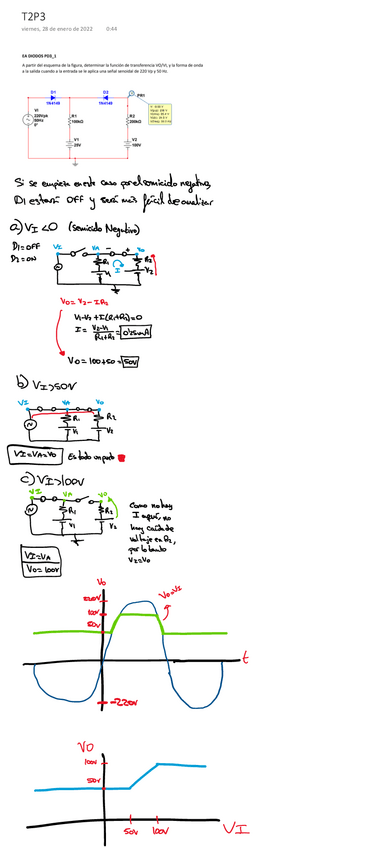 T2P3
viernes, 28 de enero de 2022 0:44
EA DIODOS PER_1
A partir del esquema de la figura, determinar la función de transferencia VO/VI, y la forma de onda
a la salida cuando a la entrada se le aplica una señal senoidal de 220 Vp y 50 Hz.
D1
1N4149
D2
1N4149
PR1
Vi
220Vpk
50Hz
0°
R1
100kΩ
R2
200kΩ
V1
25V
V2
100V
Si se empieza en este caso por el semiciclo negativo,
D1 estará OFF y será más fácil de analizar
a) VI<0 (semiciclo Negativo)
D1=OFF
D2=ON
VI VA VO
R1 I R2
V1 V2
VO=V2-IR2
V1-V2+I(R1+R2)=0
I= V2-V1
R1+R2 = 0'25mA
VO=100+50=50V
b) VI>50V
VI VA VO
R1 R2
V1 V2
VI=VA=VO Es todo un punto
c) VI>100V
VI VA VO
R1 R2
V1 V2
Como no hay
I aquí, no
hay caída de
voltaje en R2,
por lo tanto
V2=VO
VI=VA
VO=100V
VO
220V
100V
50V
VO=VI
t
-220V
VO
100V
50V
50V 100V VI